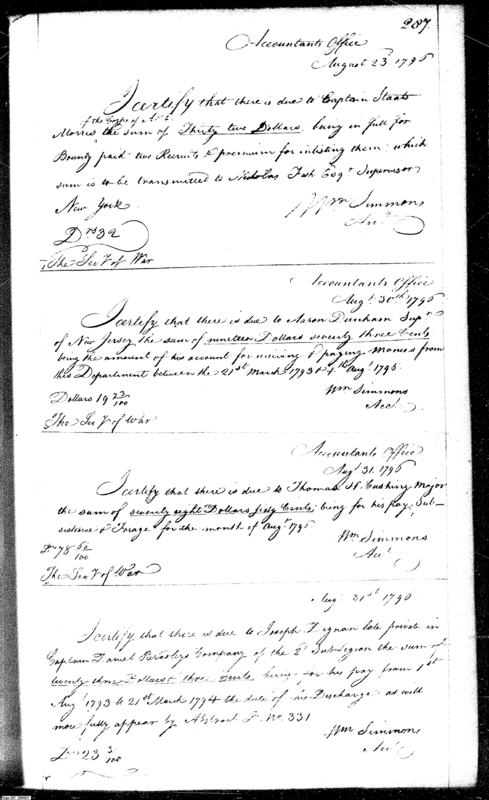 287
Accountants Office
August 23d 1795
I certify that there is due to Captain Staats
of the Corps of A & E
Morris the sum of Thirty two Dollars, being in full for
Bounty paid two Recruits & premium for inlisting them: which
sum is to be transmitted to Nicholas Fish Esqr Supervisor
New York.
Wm Simmons
Acct
Drs 32
The Secy of War
Accountants Office
Augt 30th 1795
I certify that there is due to Aaron Dunham Supr
of New Jersey the sum of nineteen Dollars seventy three Cents
being the amount of his account for receiving & paying Monies from
this Department between the 21st March 1793 & 4th Augt 1795.
Wm Simmons
Acct
Dollars 19 73/100
The Secy of War
Accountants Office
Augt 31. 1795
I certify that there is due to Thomas H. Cushing Major
the sum of seventy eight Dollars, Cents; being for his pay, Sub-
sistence & Forage for the month of Augt 1795
Wm Simmons
Acct
Drs 78
The Secy of War
Augt 31st 1795
I certify that there is due to Joseph Dignan late private in
Captain Daniel Bradleys Company of the 2d Sub Legion the sum of
twenty three Dollars & three Cents being for his pay from 1st
Augt 1793 to 21st March 1794 the date of his Discharge as will
more fully appear by Abstract F. No. 331
Wm Simmons
Acct
Drs 23 3/100